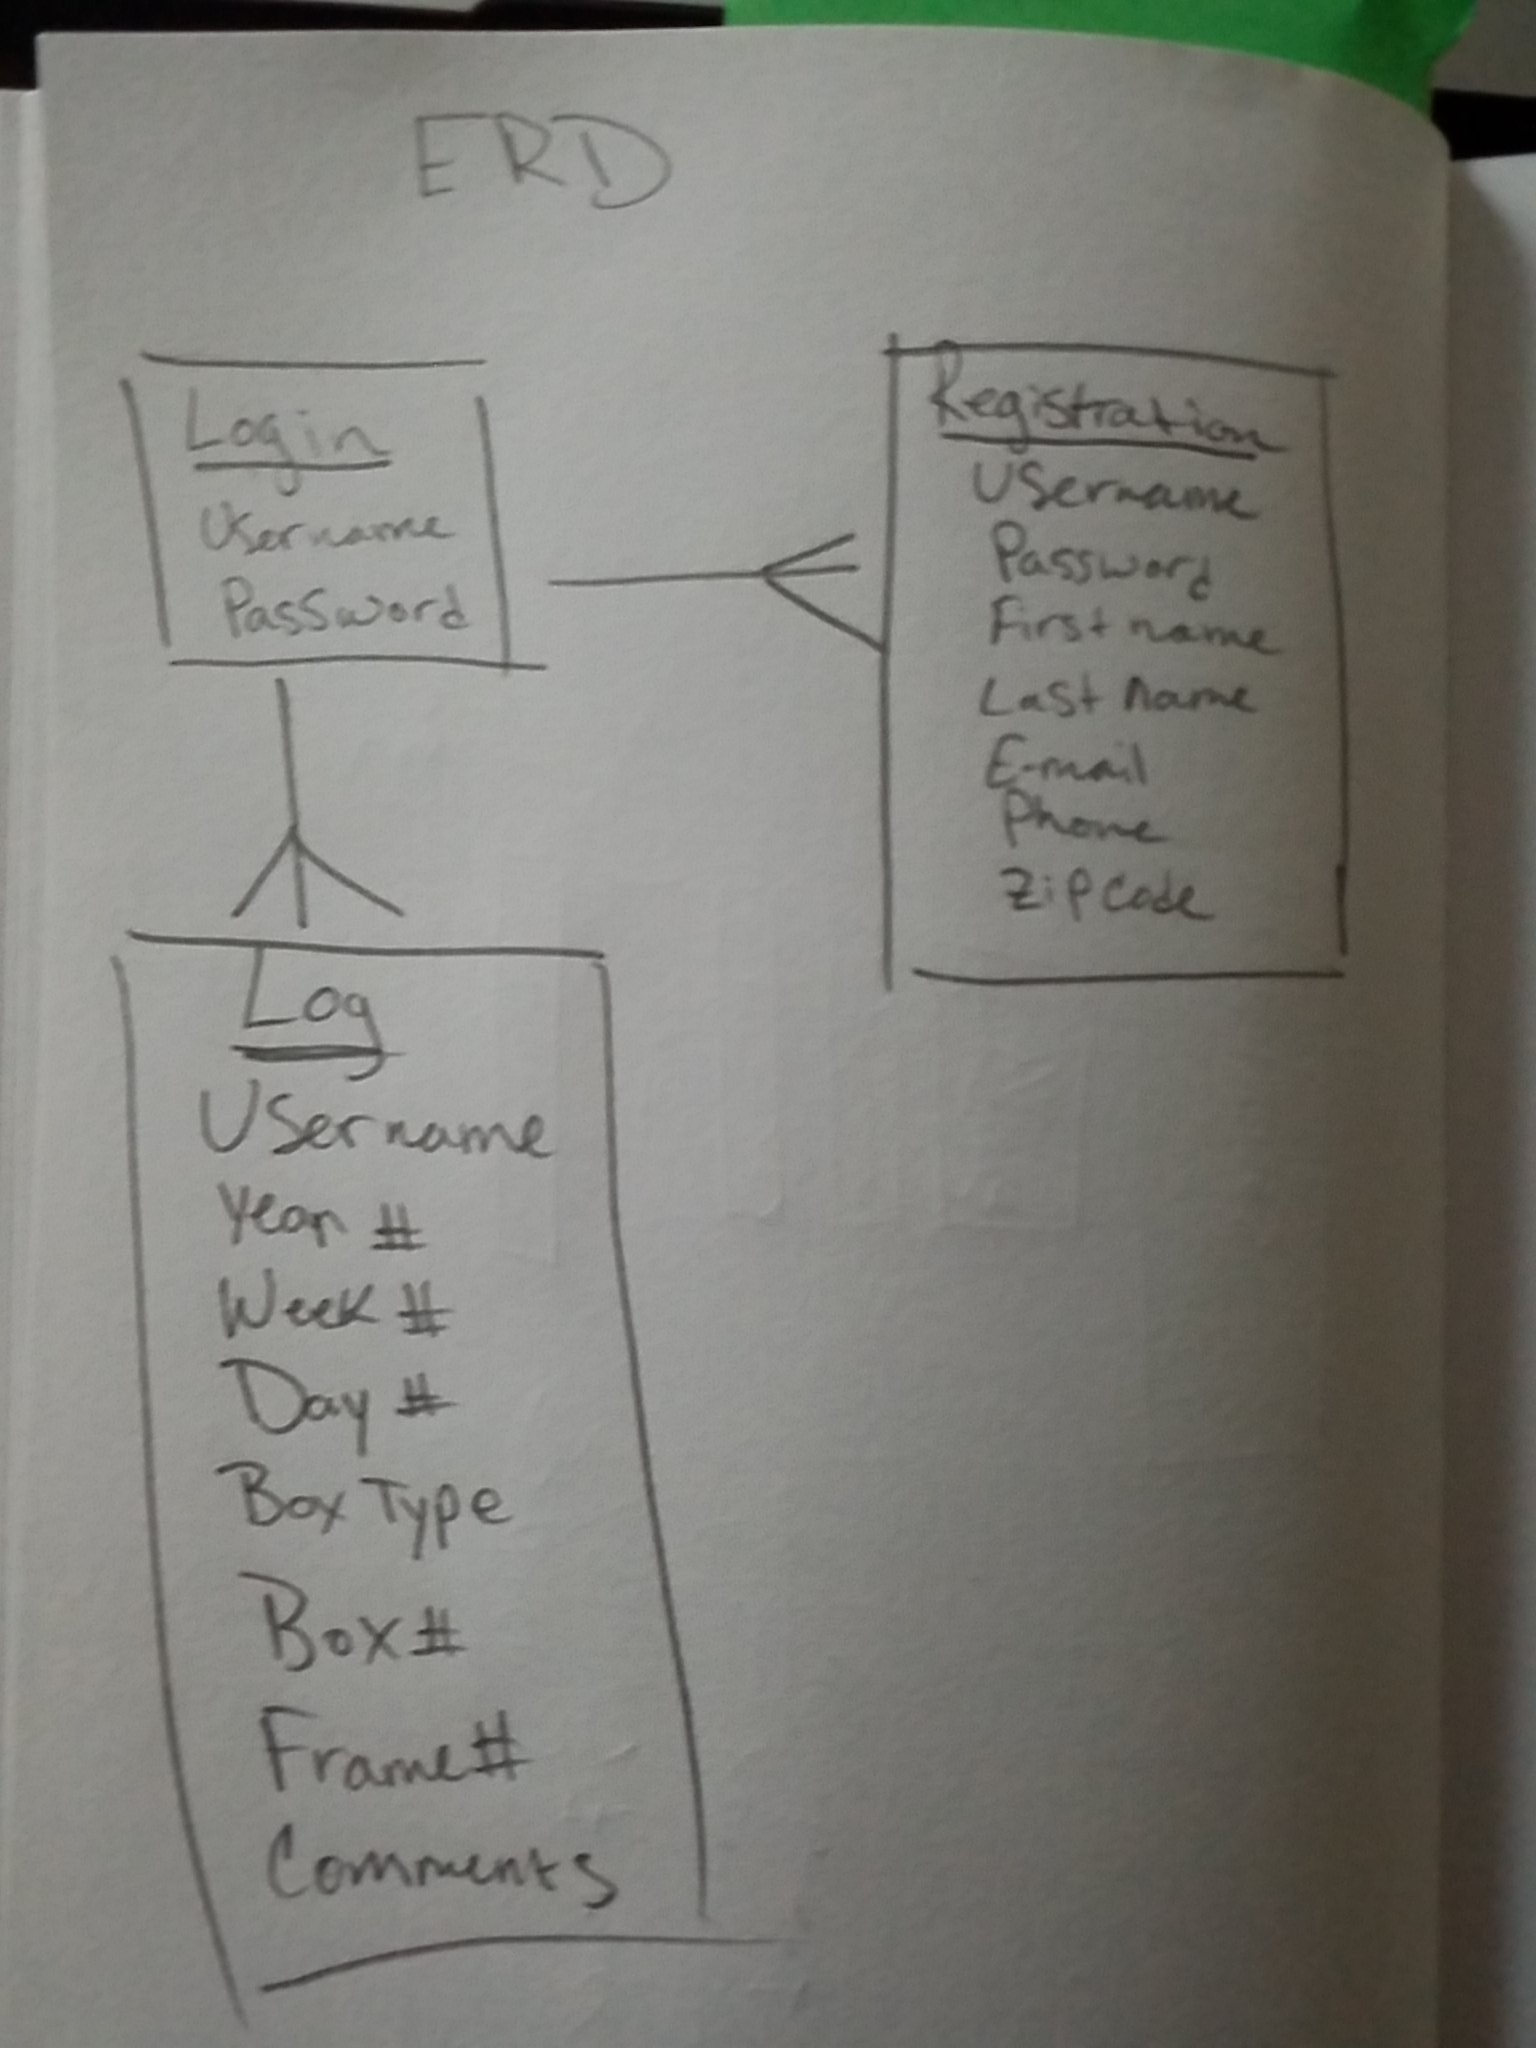 ERD
Login
Username
Password
Registration
Username
Password
First name
Last name
E-mail
Phone
Zip Code
Log
Username
Year #
Week #
Day #
Box Type
Box #
Frame #
Comments